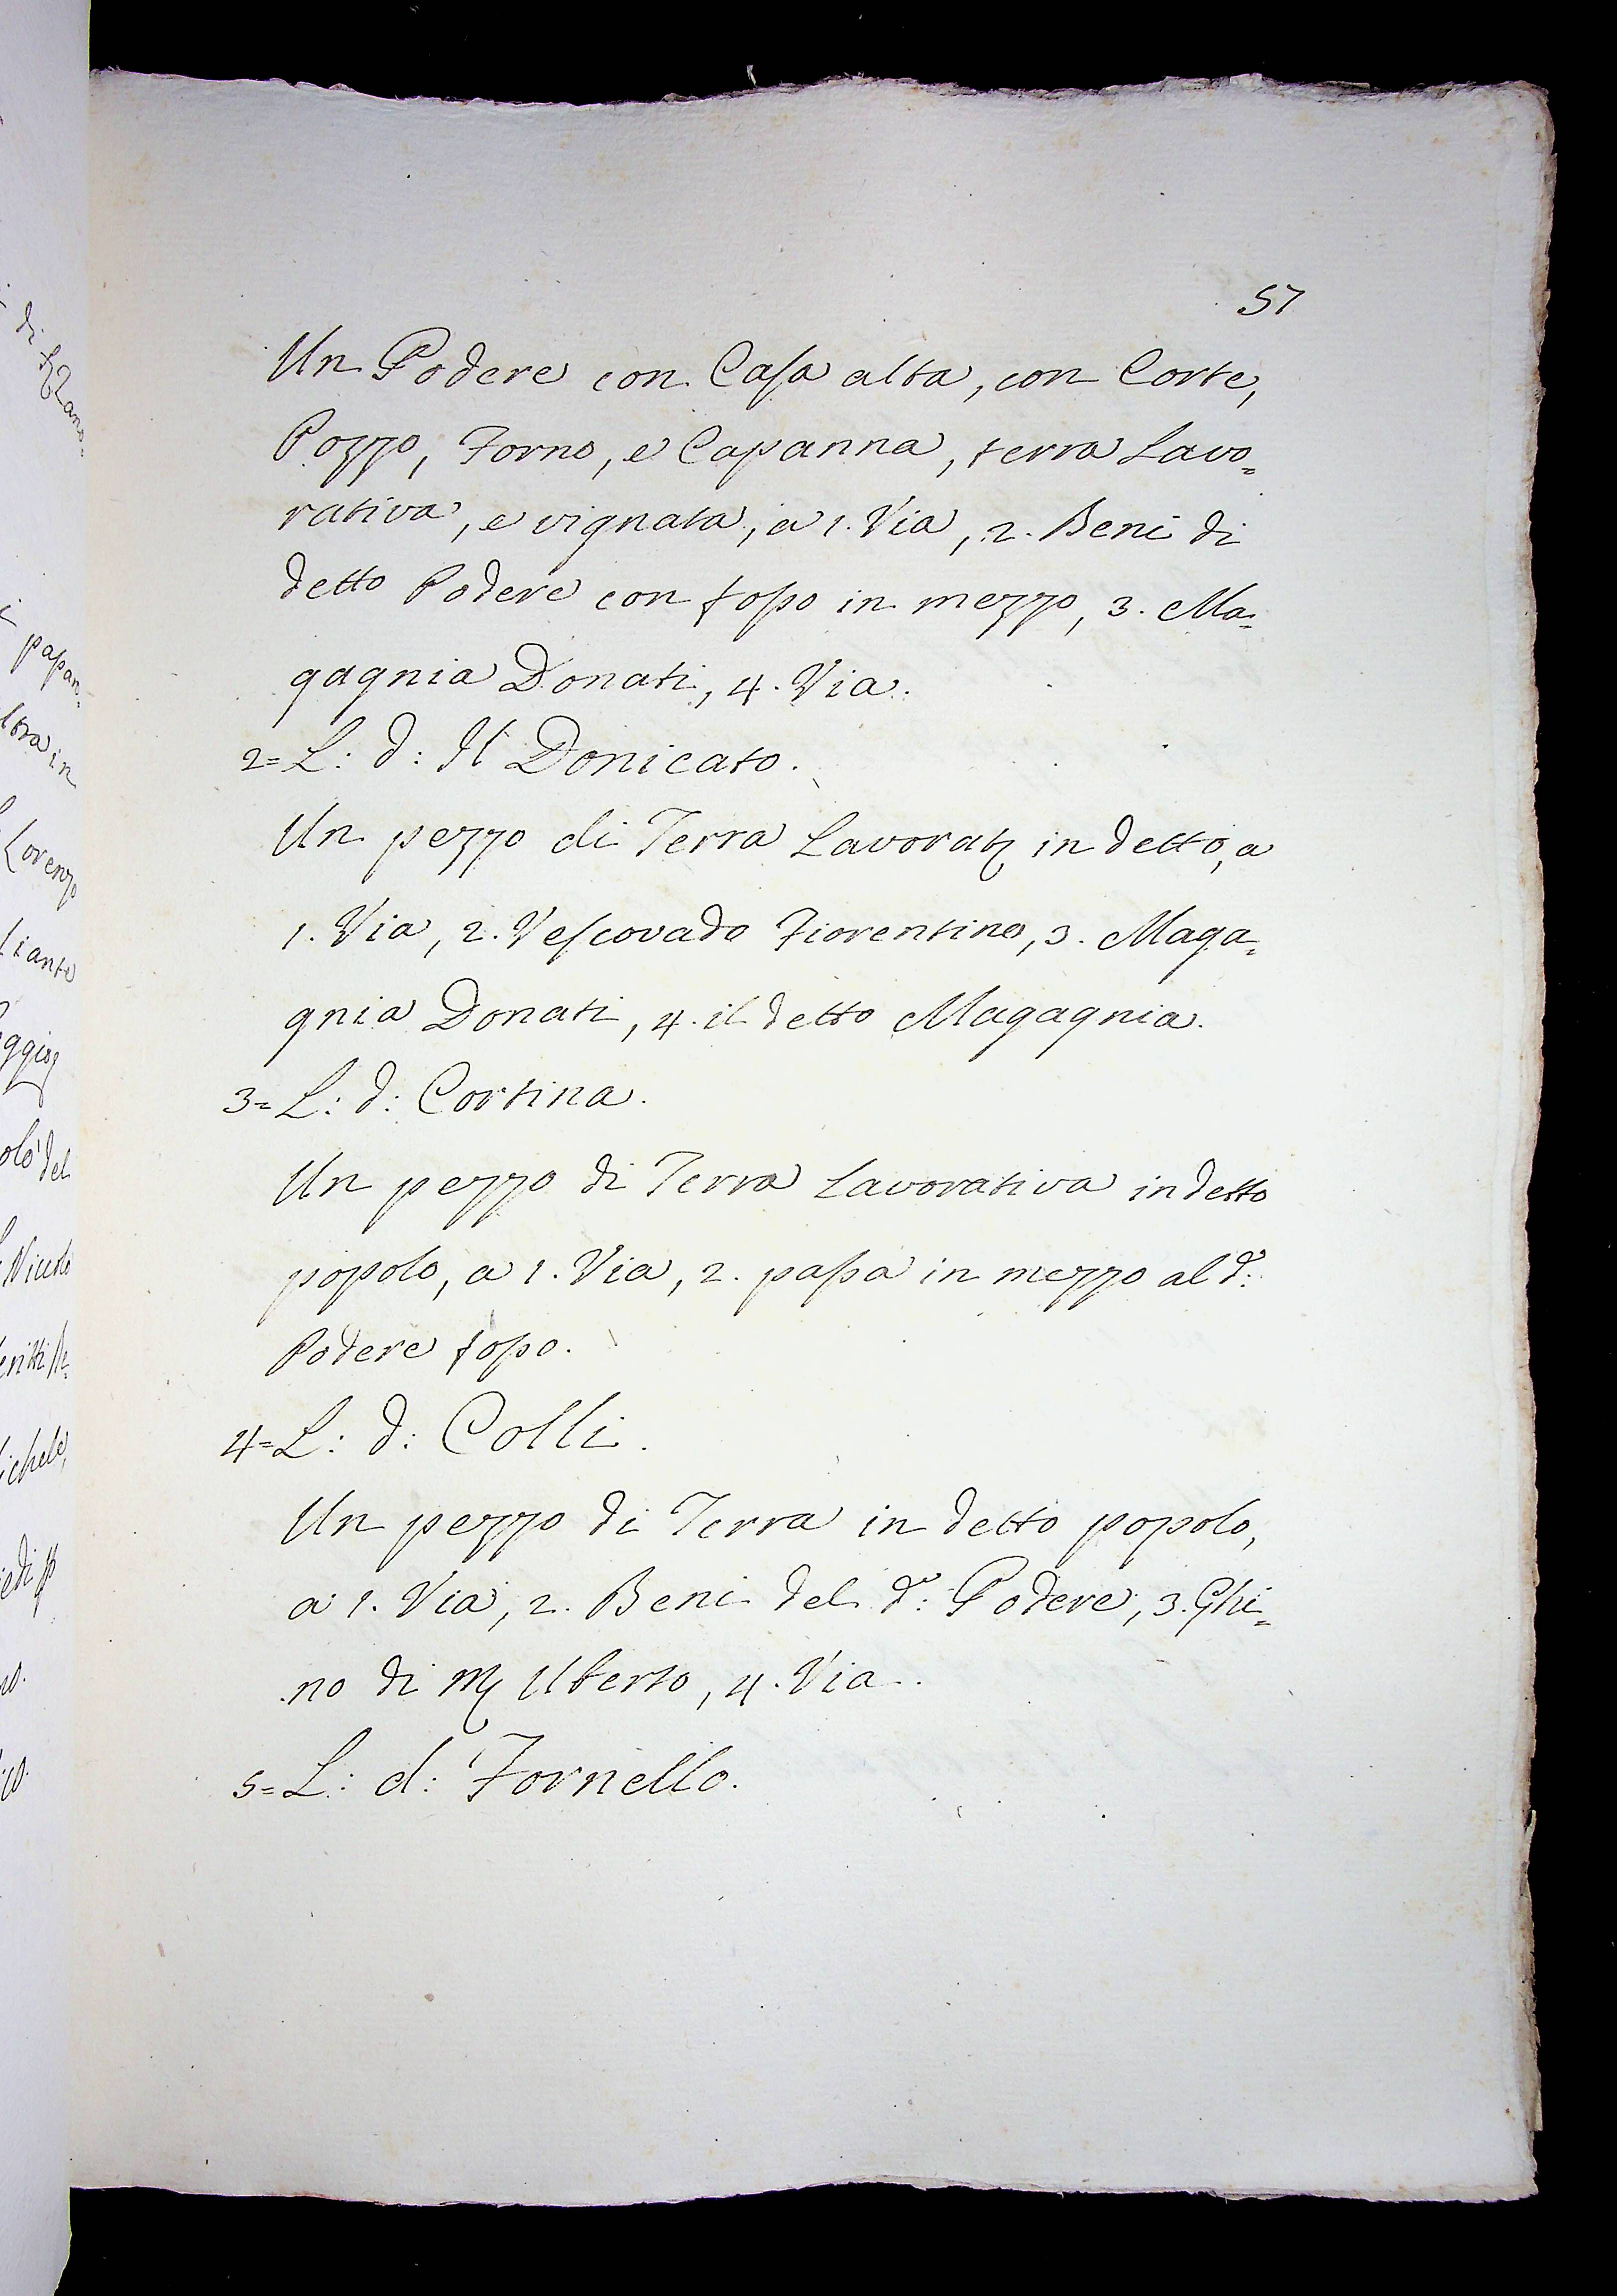 57
Un Podere con Casa alta, con Corte,
Pozzo, Forno, e Capanna, terra Lavo=
rativa, e vignata, a 1. Via, 2. Beni di
detto Podere con fosso in mezzo, 3. Ma=
gagnia Donati, 4. Via.
2= L: d: Il Donicato.
Un pezzo di Terra Lavorat in detto, a
1. Via, 2. Vescovado Fiorentino, 3. Maga=
gnia Donati, 4. il detto Magagnia.
3= L: d: Cortina.
Un pezzo di Terra Lavorativa in detto
popolo, a 1. Via, 2. passa in mezzo al d.º
Podere fosso.
4= L: d: Colli.
Un pezzo di Terra in detto popolo,
a 1. Via, 2. Beni del d.º Podere, 3. Ghi=
no di M Uberto, 4. Via.
5= L: d: Fornello.